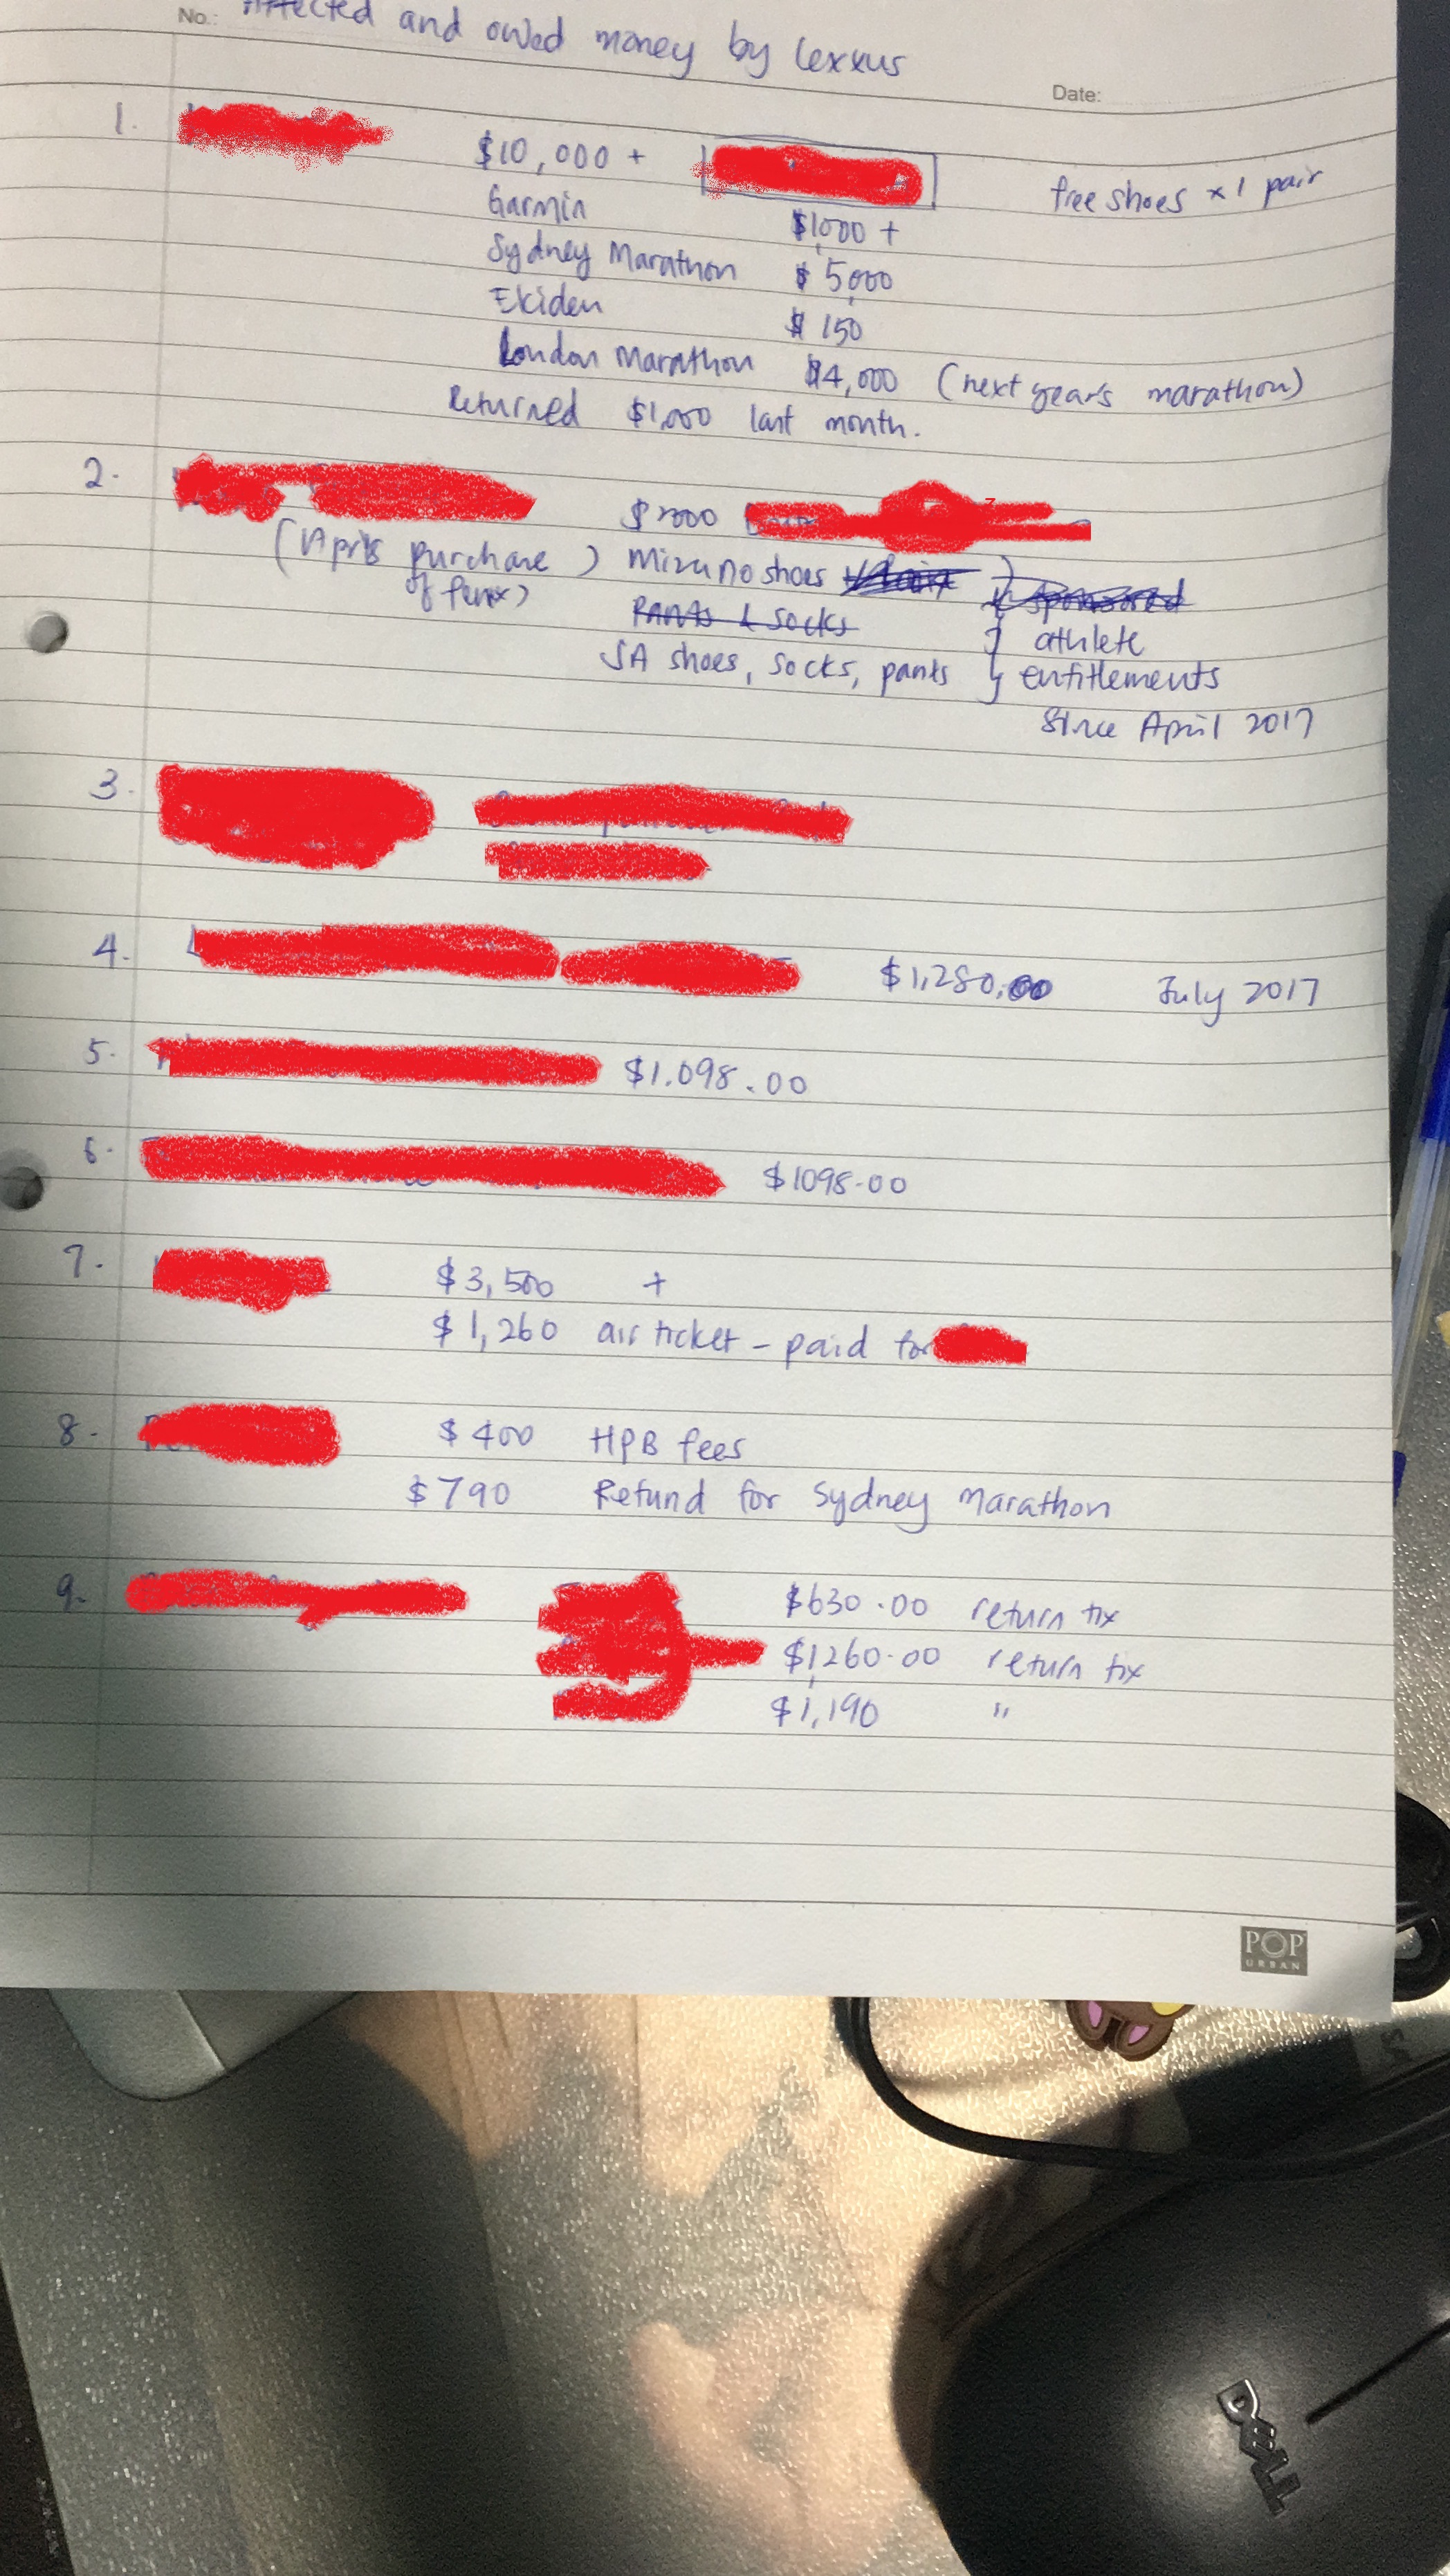 No.: Affected and owed money by Lexxus
Date:
1. $10,000 + free shoes x 1 pair
Garmin $1000 +
Sydney Marathon $5,000
Ekiden $150
London Marathon $4,000 (next year's marathon)
Returned $1,000 last month.
2. $2000
(April's purchase) Mizuno shoes sponsored
of fenix)
Pants & socks athlete
SA shoes, socks, pants entitlements
Since April 2017
3.
4. $1,280.00 July 2017
5. $1.098.00
6. $1098.00
7. $3,500 +
$1,260 air ticket - paid for
8. $400 HPB fees
$790 Refund for Sydney Marathon
9. $630.00 return tix
$1,260.00 return tix
$1,190 "
POP
URBAN
DELL